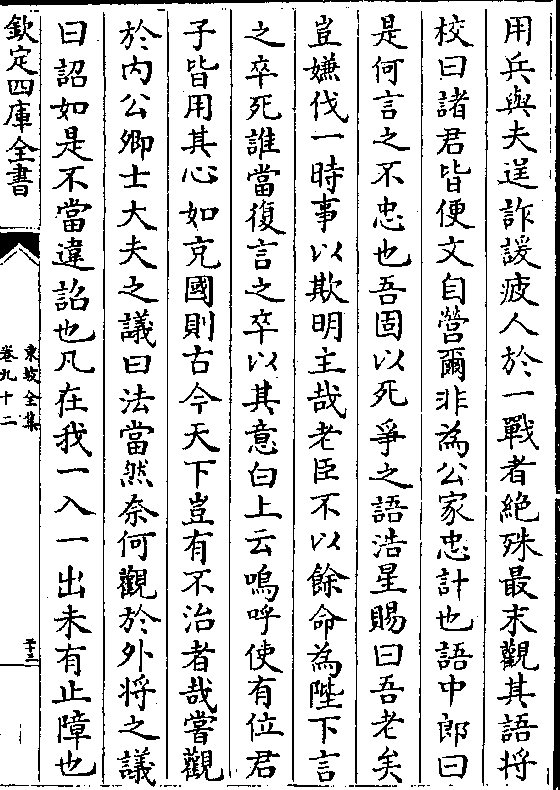 用兵與夫逞詐諼疲人於一戰者絶殊最末觀其語將
校曰諸君皆便文自營爾非為公家忠計也語中郎曰
是何言之不忠也吾固以死爭之語浩星賜曰吾老矣
豈嫌伐一時事以欺明主哉老臣不以餘命為陛下言
之卒死誰當復言之卒以其意白上云嗚呼使有位君
子皆用其心如充國則古今天下豈有不治者哉嘗觀
於内公卿士大夫之議曰法當然奈何觀於外將之議
曰詔如是不當違詔也凡在我一入一出未有止障也
欽定四庫全書
東坡全集
卷九十二